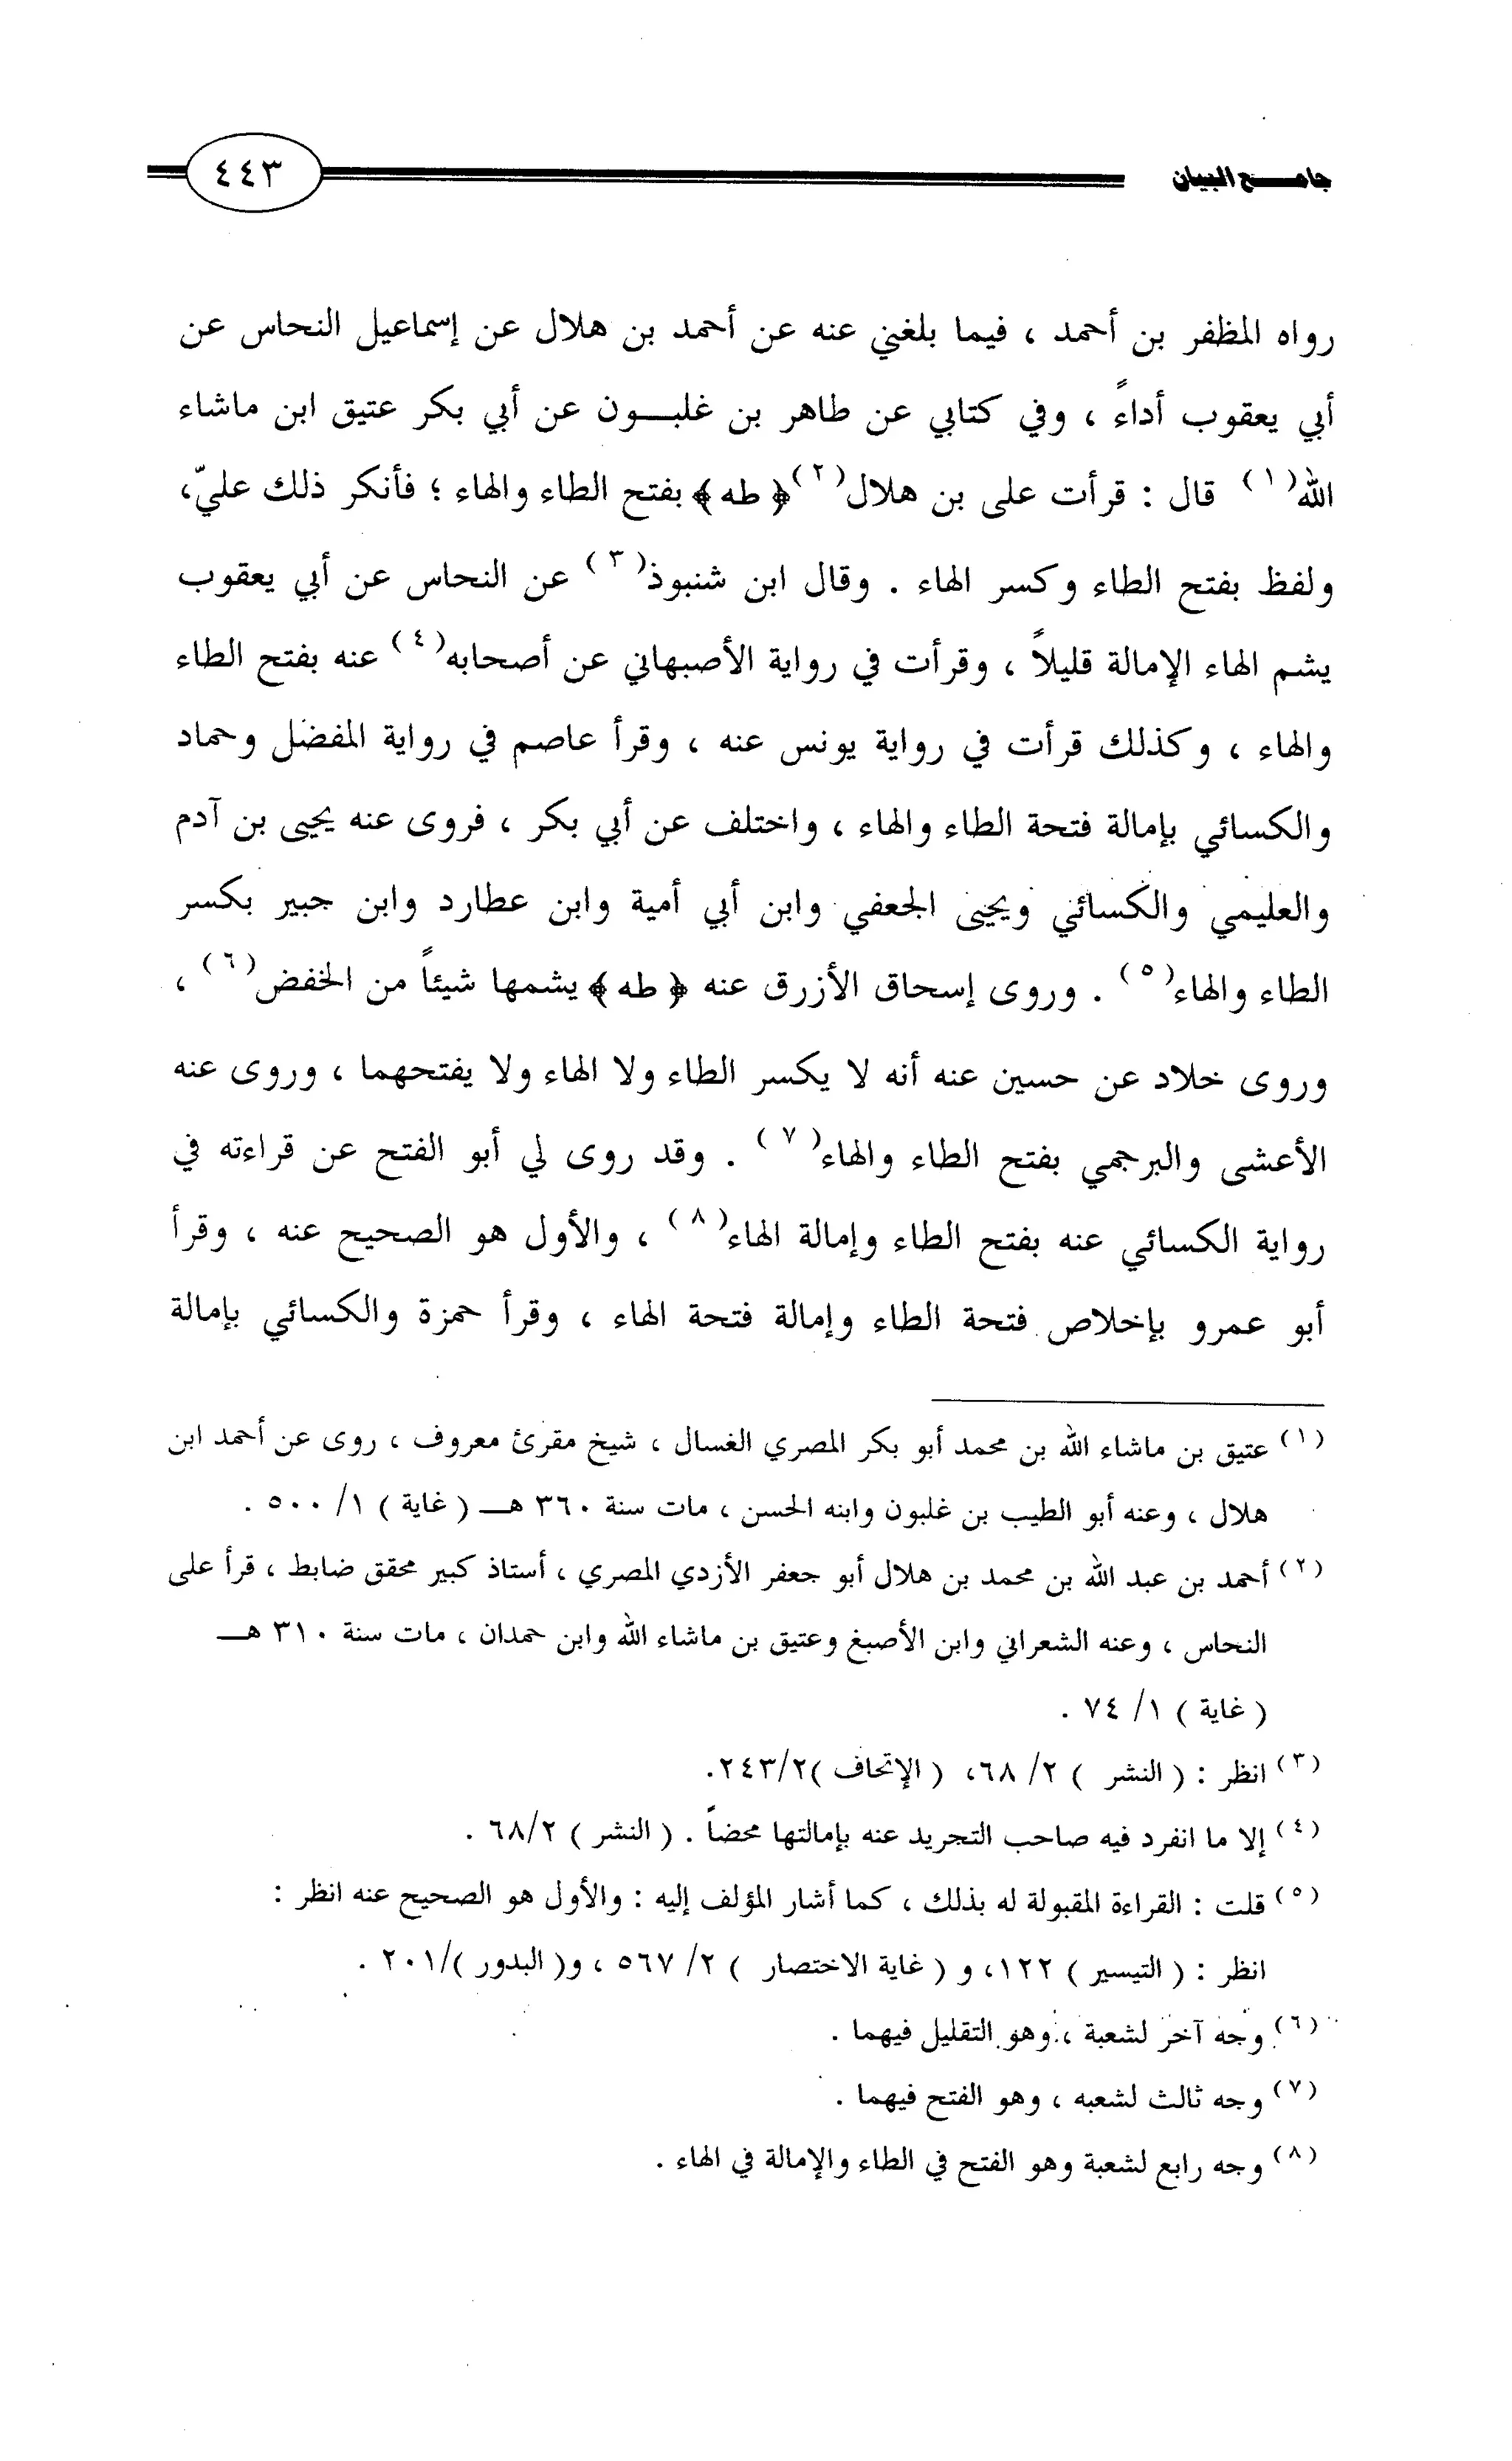 جامـــع البيان
٤٤٣
رواه المظفر بن أحمد ، فيما بلغني عنه عن أحمد بن هلال عن إسماعيل النحاس عن
أبي يعقوب أداءً ، وفي كتابي عن طاهر بن غلبـــون عن أبي بكر عتيق ابن ماشاء
الله(١) قال : قرأت على بن هلال(٢)﴿ طه ﴾ بفتح الطاء والهاء ؛ فأنكر ذلك عليّ،
ولفظ بفتح الطاء وكسر الهاء . وقال ابن شنبوذ(٣) عن النحاس عن أبي يعقوب
يشم الهاء الإمالة قليلاً ، وقرأت في رواية الأصبهاني عن أصحابه(٤) عنه بفتح الطاء
والهاء ، وكذلك قرأت في رواية يونس عنه ، وقرأ عاصم في رواية المفضل وحماد
والكسائي بإمالة فتحة الطاء والهاء ، واختلف عن أبي بكر ، فروى عنه يحيى بن آدم
والعليمي والكسائي ويحيى الجعفي وابن أبي أمية وابن عطارد وابن جبير بكسر
الطاء والهاء(٥) . وروى إسحاق الأزرق عنه ﴿ طه ﴾ يشمها شيئاً من الخفض(٦) ،
وروى خلاد عن حسين عنه أنه لا يكسر الطاء ولا الهاء ولا يفتحهما ، وروى عنه
الأعشى والبرجمي بفتح الطاء والهاء(٧) . وقد روى لي أبو الفتح عن قراءته في
رواية الكسائي عنه بفتح الطاء وإمالة الهاء(٨) ، والأول هو الصحيح عنه ، وقرأ
أبو عمرو بإخلاص فتحة الطاء وإمالة فتحة الهاء ، وقرأ حمزة والكسائي بإمالة
(١) عتيق بن ماشاء الله بن محمد أبو بكر المصري الغسال ، شيخ مقرئ معروف ، روى عن أحمد ابن
هلال ، وعنه أبو الطيب بن غلبون وابنه الحسن ، مات سنة ٣٦٠ هـــ ( غاية ) ١/ ٥٠٠ .
(٢) أحمد بن عبد الله بن محمد بن هلال أبو جعفر الأزدي المصري ، أستاذ كبير محقق ضابط ، قرأ على
النحاس ، وعنه الشعراني وابن الأصبغ وعتيق بن ماشاء الله وابن حمدان ، مات سنة ٣١٠ هـــ
( غاية ) ١/ ٧٤ .
(٣) انظر : ( النشر ) ٢/ ٦٨، ( الإتحاف )٢/٢٤٣.
(٤) إلا ما انفرد فيه صاحب التجريد عنه بإمالتها محضاً . ( النشر ) ٦٨/٢ .
(٥) قلت : القراءة المقبولة له بذلك ، كما أشار المؤلف إليه : والأول هو الصحيح عنه انظر :
انظر : ( التيسير ) ١٢٢، و ( غاية الاختصار ) ٢/ ٥٦٧ ، و( البدور )/٢٠١ .
(٦) وجه آخر لشعبة ، وهو التقليل فيهما .
(٧) وجه ثالث لشعبه ، وهو الفتح فيهما .
(٨) وجه رابع لشعبة وهو الفتح في الطاء والإمالة في الهاء .